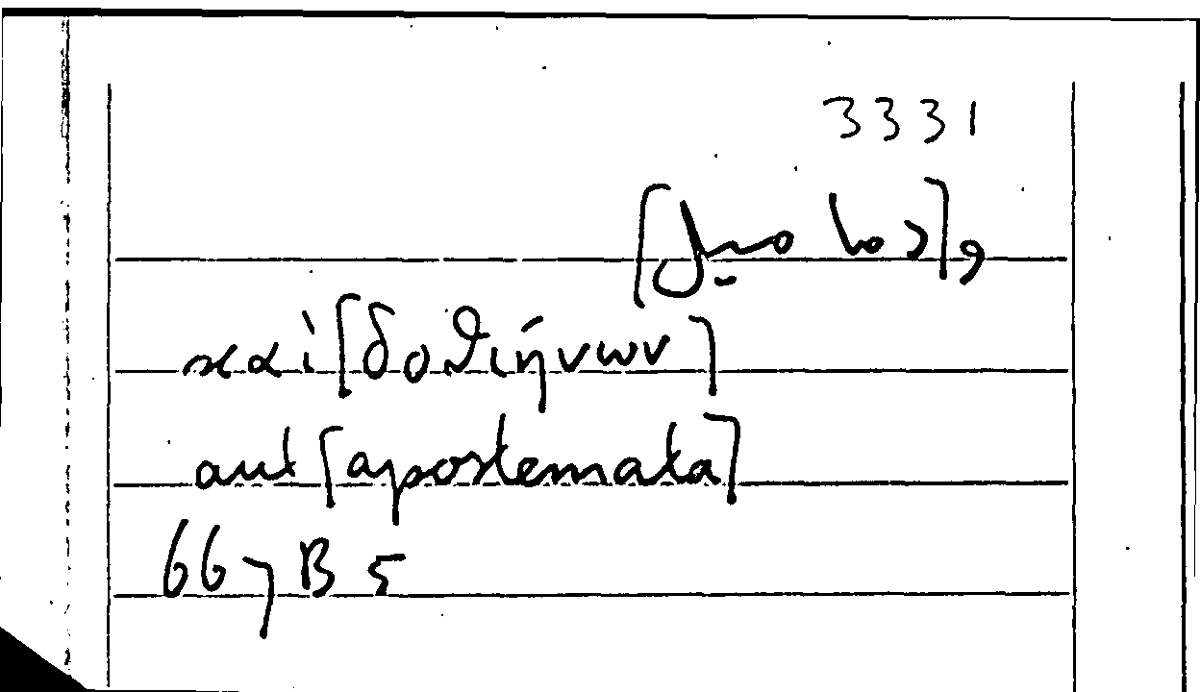 3331
καὶ [δοθιήνων]
aut [apostemata]
667 B 5